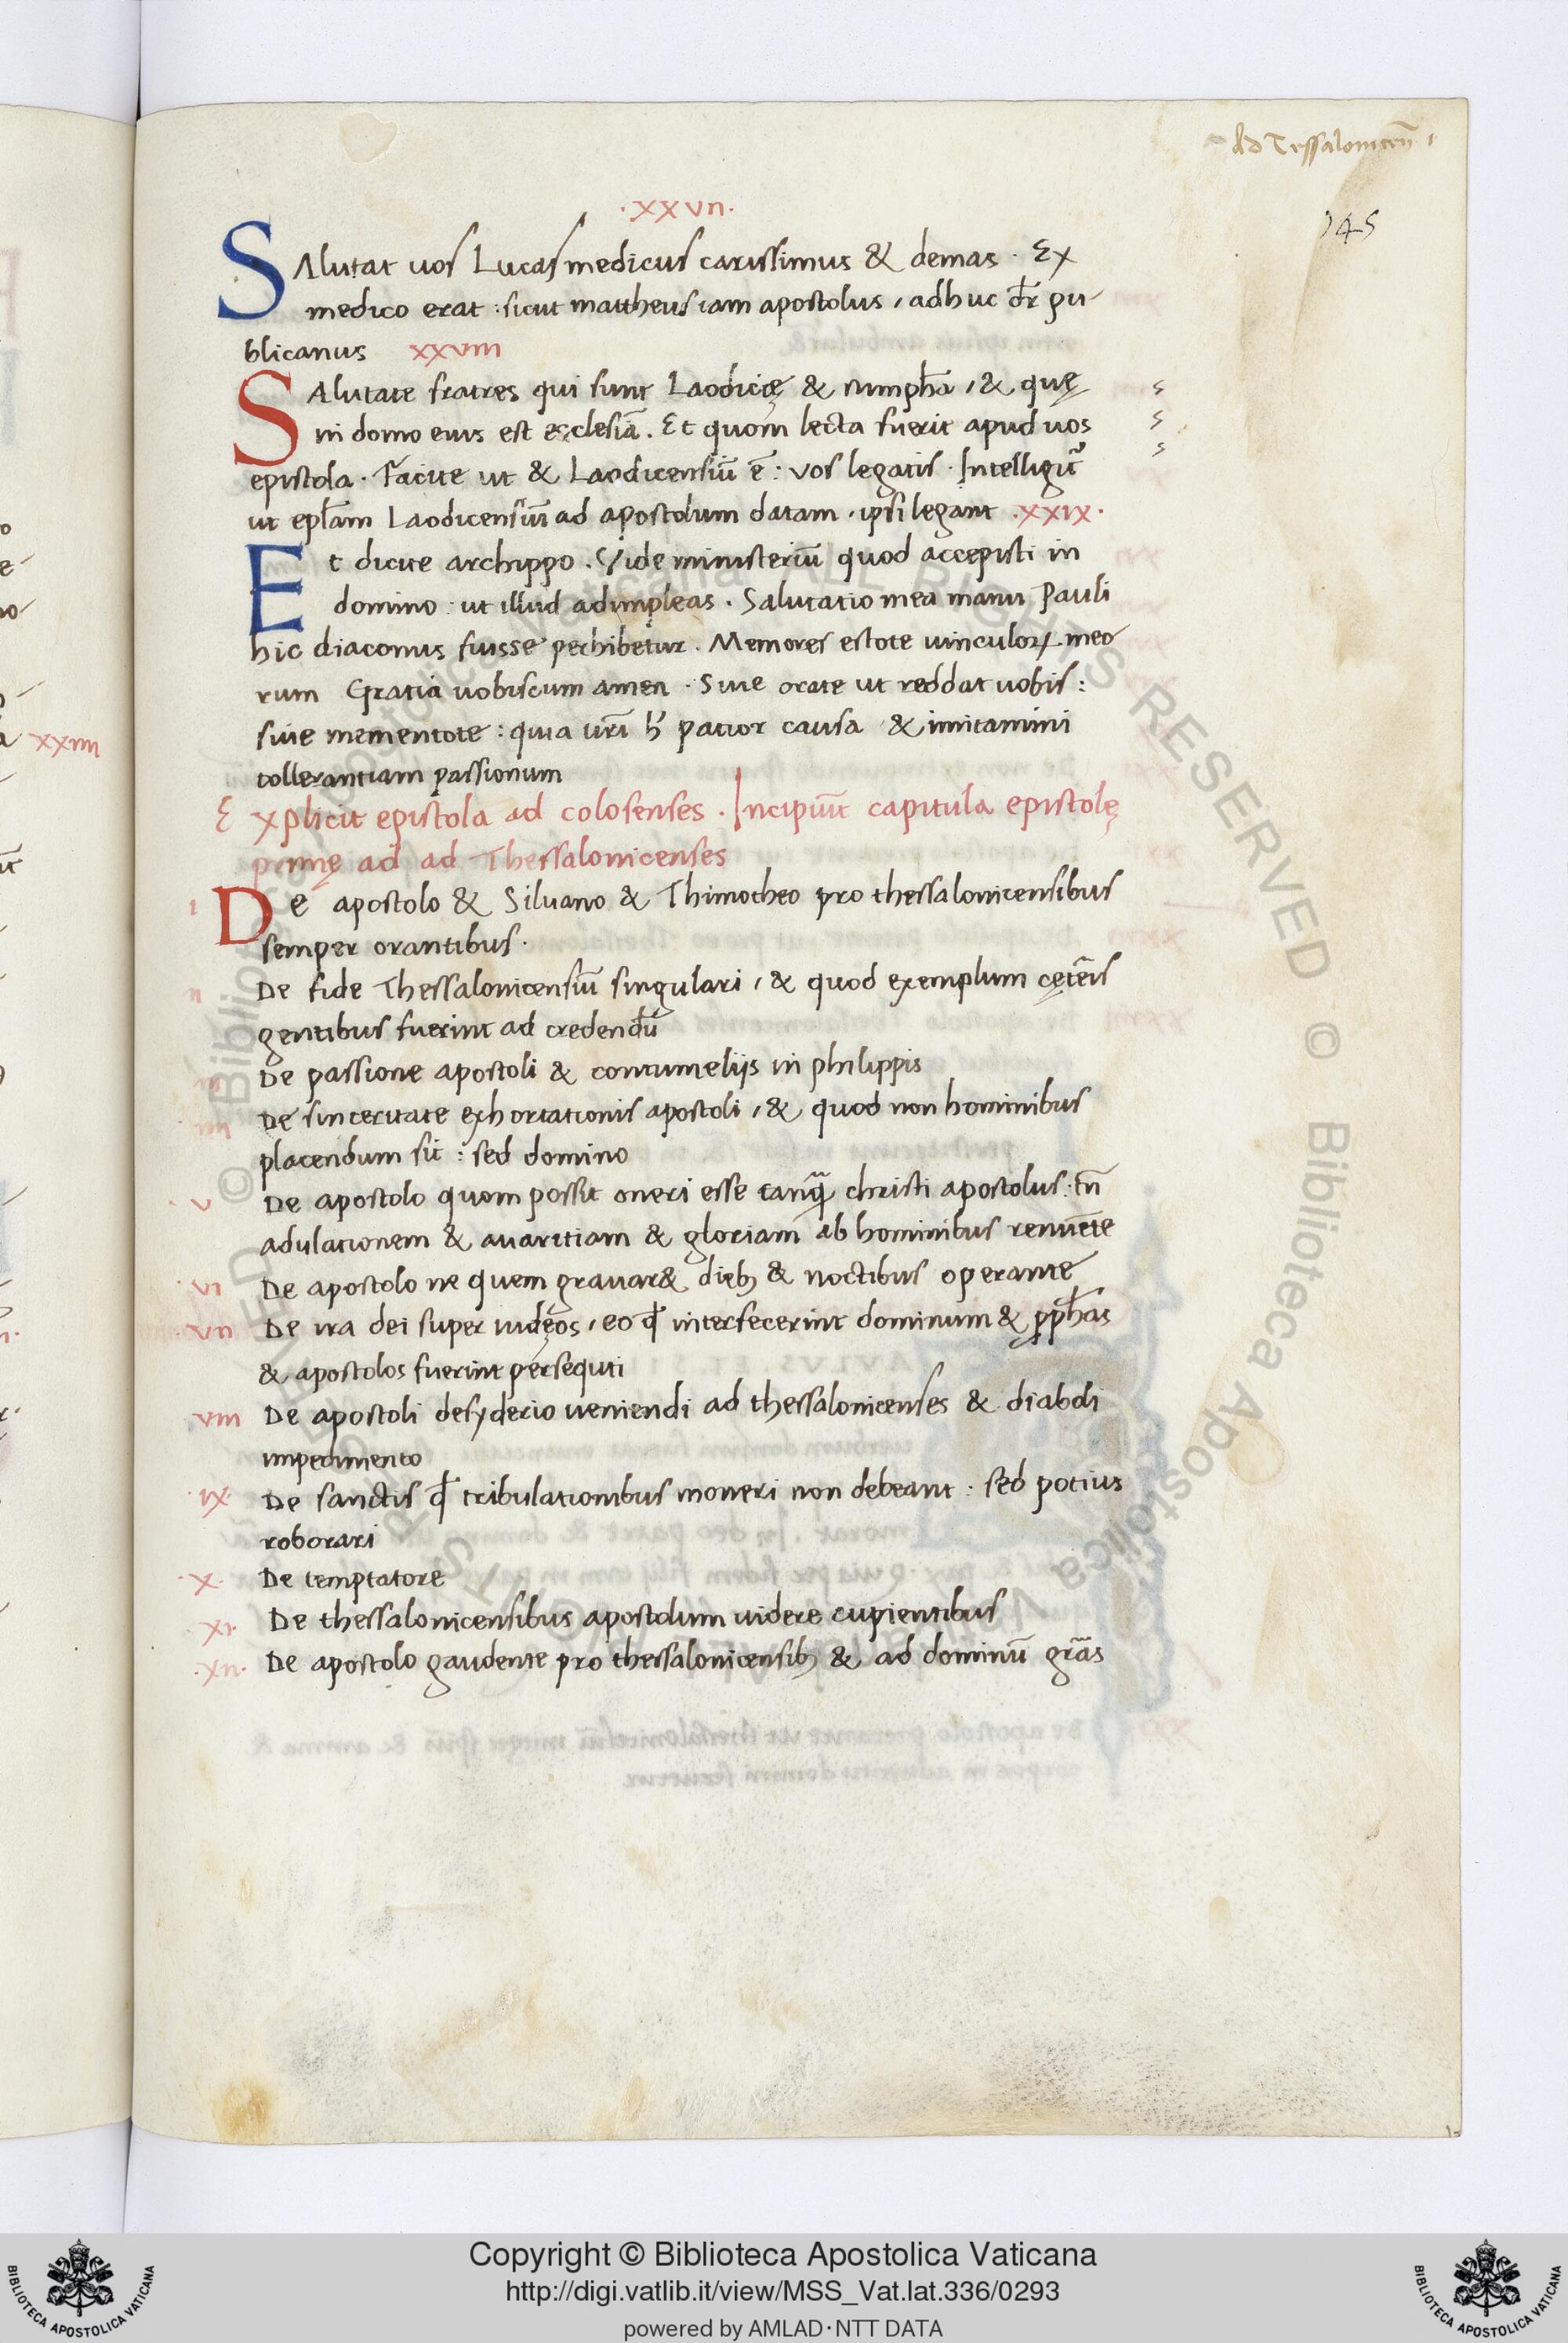 Ad Tessalonicen̄ 1
145
·xxvii·
SAlutat uos Lucas medicus carissimus & demas · Ex
medico erat : sicut mattheus iam apostolus, adhuc dr̄ pu-
blicanus xxviii
SAlutate fratres qui sunt Laodicię & nimpha, & quę
in domo eius est ecclesiā. Et quom lecta fuerit apud uos
epistola · Facite ut & Laodicensiū ē : vos legatis · Intelligit᷑
ut epl̄am Laodicensiūm ad apostolum datam, ipsi legant ·xxix·
Et dicite archippo. Vide ministeriū quod accepisti in
domino : ut illud adimpleas. Salutatio mea manu Pauli
hic diaconus fuisse perhibetur. Memores estote uinculoꝝ meo
rum Gratia uobiscum amen · Siue orate ut reddat uobis :
siue mementote : quia ur̄i h̄ patior causa & imitamini
tollerantiam passionum
Explicit epistola ad colosenses · Incipiūt capitula epistolę
primę ad ad Thessalonicenses
i De apostolo & Siluano & Thimotheo pro thessalonicensibus
semper orantibus ·
ii De fide Thessalonicensiū singulari, & quod exemplum cęteris
gentibus fuerint ad credendū
iii De passione apostoli & contumelijs in philippis
iiii De sinceritate exhortationis apostoli, & quod non hominibus
placendum sit : sed domino
v De apostolo quom possit oneri esse tanq̄ christi apostolus : tn̄
adulationem & auaritiam & gloriam ab hominibus renuēte
vi De apostolo ne quem grauar& dieb; & noctibus operante
vii De ira dei super iudęos, eo qđ interfecerint dominum & ꝓphas
& apostolos fuerint persequti
viii De apostoli desyderio ueniendi ad thessalonicenses & diaboli
impedimento
·ix· De sanctis qđ tribulationibus moueri non debeant : sed potius
roborari
·x· De temptatore
xi· De thessalonicensibus apostolum uidere cupientibus
·xii· De apostolo gaudente pro thessalonicensib; & ad dominū gr̄as
xxiiii
Copyright © Biblioteca Apostolica Vaticana
http://digi.vatlib.it/view/MSS_Vat.lat.336/0293
powered by AMLAD·NTT DATA
BIBLIOTECA APOSTOLICA VATICANA
BIBLIOTECA APOSTOLICA VATICANA